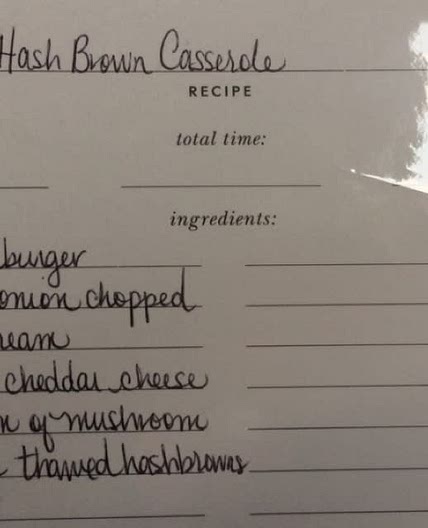 Hash Brown Casserole
RECIPE
total time:
ingredients:
burger
onion chopped
ream
cheddar cheese
m of mushroom
thawed hashbrowns